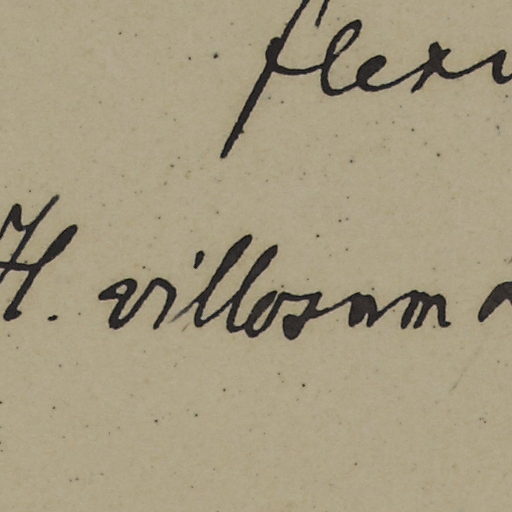 flexu
H. villosum